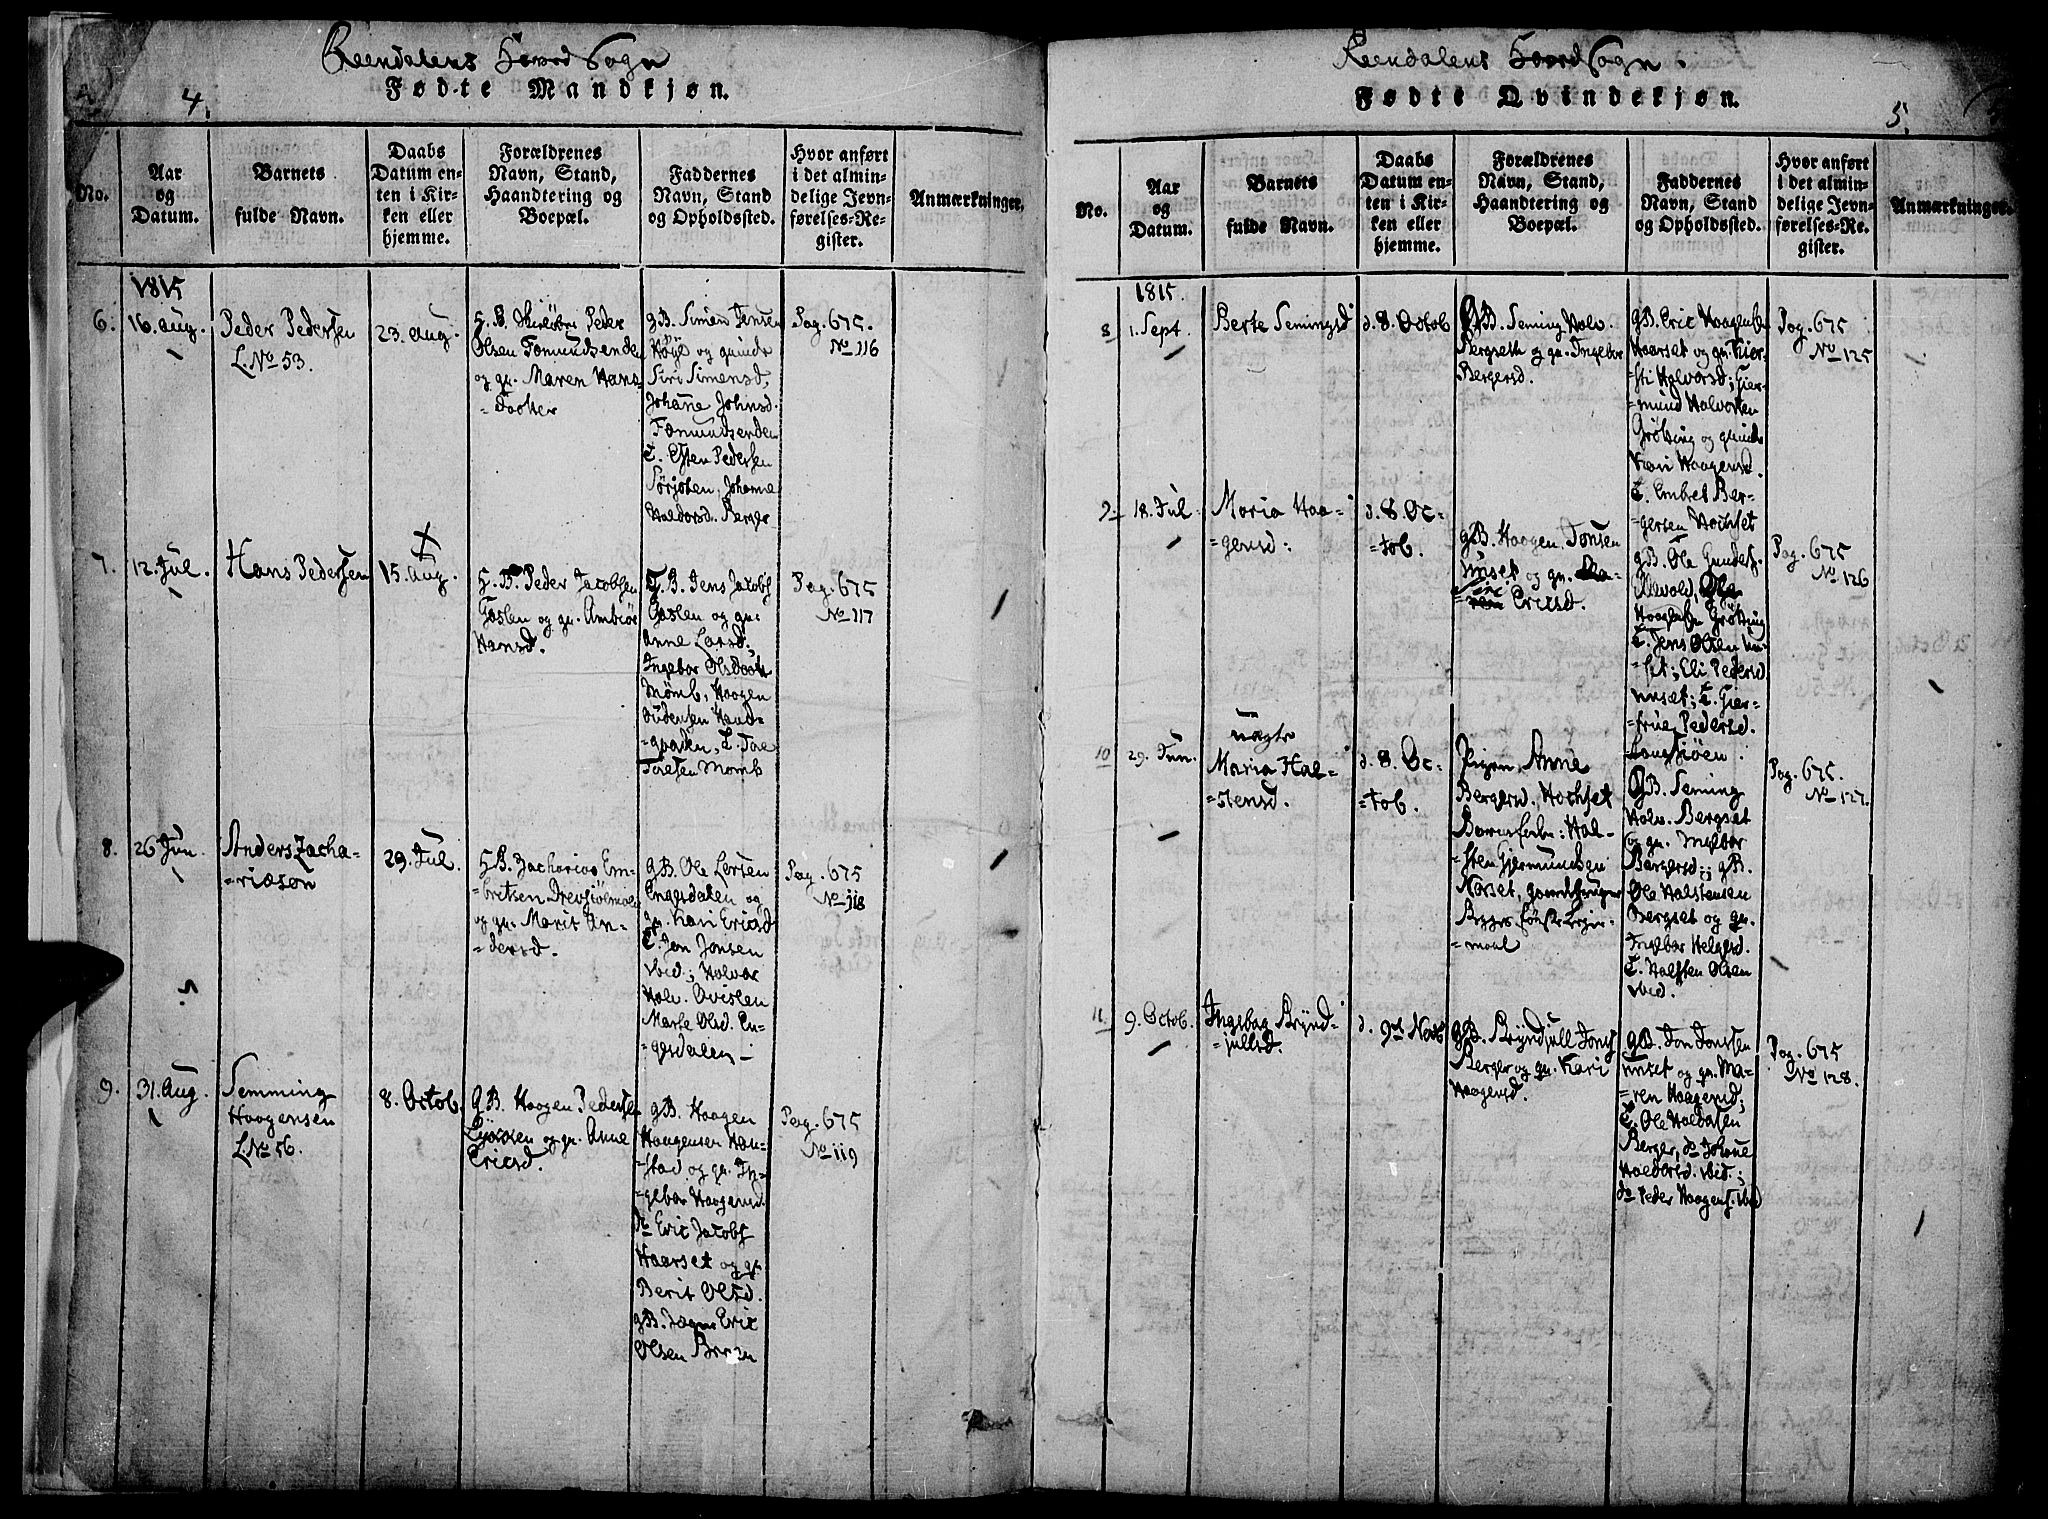 Reendalens Hoved Sogn
Fødte Mandkjøn.
4.
No.
Aar
og
Datum.
Barnets
fulde Navn.
Daabs
Datum en-
ten i Kir-
ken eller
hjemme.
Forældrenes
Navn, Stand,
Haandtering og
Boepæl.
Faddernes
Navn, Stand
og Opholdssted.
Hvor anført
i det almin-
delige Jevn-
førelses-Re-
gister.
Anmærkninger.
1815
6.
16. Aug.
Peder Pedersen
L. No 53.
23. Aug.
Peder
Olsen Fæmundsenden
og qv. Maren Hans-
=Datter
gB. Simen Jensen
og qvinde
Siri Simensd,
Johane Johnsd.
Fæmundsenden
T. Esten Pedersen
Johanne
Haldorsd. Berger
Pag. 675.
No 116
7.
12. Jul.
Hans Pedersen
15. Aug.
H. B. Peder Jacobsen
og qv.
Hansd.
Jens Jacobs
og qv.
Anne Larsd.
Ingebor Olsdaat
Mömb, Haagen
T. Tore
Toresen Momb
Pag. 675
No 117
8.
26 Jun.
Anders Zacha-
=riæsøn
29. Jul.
H B. Zacharias Em-
=bretsen
og qv. Marit An-
=dersd.
gB. Ole Larsen
Engesdalen og
qv. Kari Ericsd
T. Jon Jonsen
ibid; Halvor
Halv. Qvislen
Marte Olsd. En-
=gesdalen
Pag. 675
No 118
9.
31. Aug.
Semming
Haagensen
L. No 56.
8. Octob.
gB. Haagen Pedersen
og qv. Anne
Ericsd.
gB. Haagen
Haagensen Han-
=stad og qv. In-
=gebor Haagensd.
do Eric Jacobs
Haarset og qv.
Berit Olsd.
Eric
Olsen
Pag. 675
No 119
Reendalens Hoved Sogn.
Fødte Qvindekjøn.
5.
No.
Aar
og
Datum.
Barnets
fulde Navn.
Daabs
Datum en-
ten i Kir-
ken eller
hjemme.
Forældrenes
Navn, Stand,
Haandtering og
Boepæl.
Faddernes
Navn, Stand
og Opholdssted.
Hvor anført
i det almin-
delige Jevn-
førelses-Re-
gister.
Anmærkninger.
1815.
8
1. Sept.
Berte Semingsd
d. 8. Octob
gB. Seming Halv.
Bergseth og qv. Ingebor
Bergersd.
gB. Eric Haagens
Haarset og qv. Kier-
=sti Halvorsd; Gier-
=mund Halvorsen
Grötting og qvinde
Kari Haagensd.
T. Embret Ber-
=gersen Hochset
Pag. 675
No 125
9
18. Jul
Maria Haa-
=gensd:
d. 8 Oc-
=tob.
gB. Haagen Jonsen
Unset og qv.
Siri
Ericsd.
gB. Ole Gunders.
Ole
Grötting
T. Jens Olsen Un-
=set; Eli Pedersd
Unsæt; T. Gier-
=true Pedersd.
Pag. 675
No 126
10
29. Jun.
uægte
Maria Hal-
=stensd.
d. 8. Oc-
=tob.
Pigen Anne
Bergersd. Hochset
Barnefader: Hal-
=sten Gjermundsen
=maal
gB. Seming
Halv. Bergset
og qv. Ingebor
Bergersd; gB.
Ole Halstensen
Bergset og qv.
Ingebor Helgesd.
T. Halsten Olsen
ibid.
Pag. 675.
No 127.
11
9. Octob.
Ingebor Brynd-
=julsd.
gB. Bryndjull Jons
Berger og qv. Kari
Haagensd.
gB. Jon Jonssen
Unset og qv. Ma-
=ren Haagensd;
T. Ole Haldorsen
Berger, do Johane
Haldorsd. ibid;
do Peder Haagens. ibid
Pag. 675
No 128.